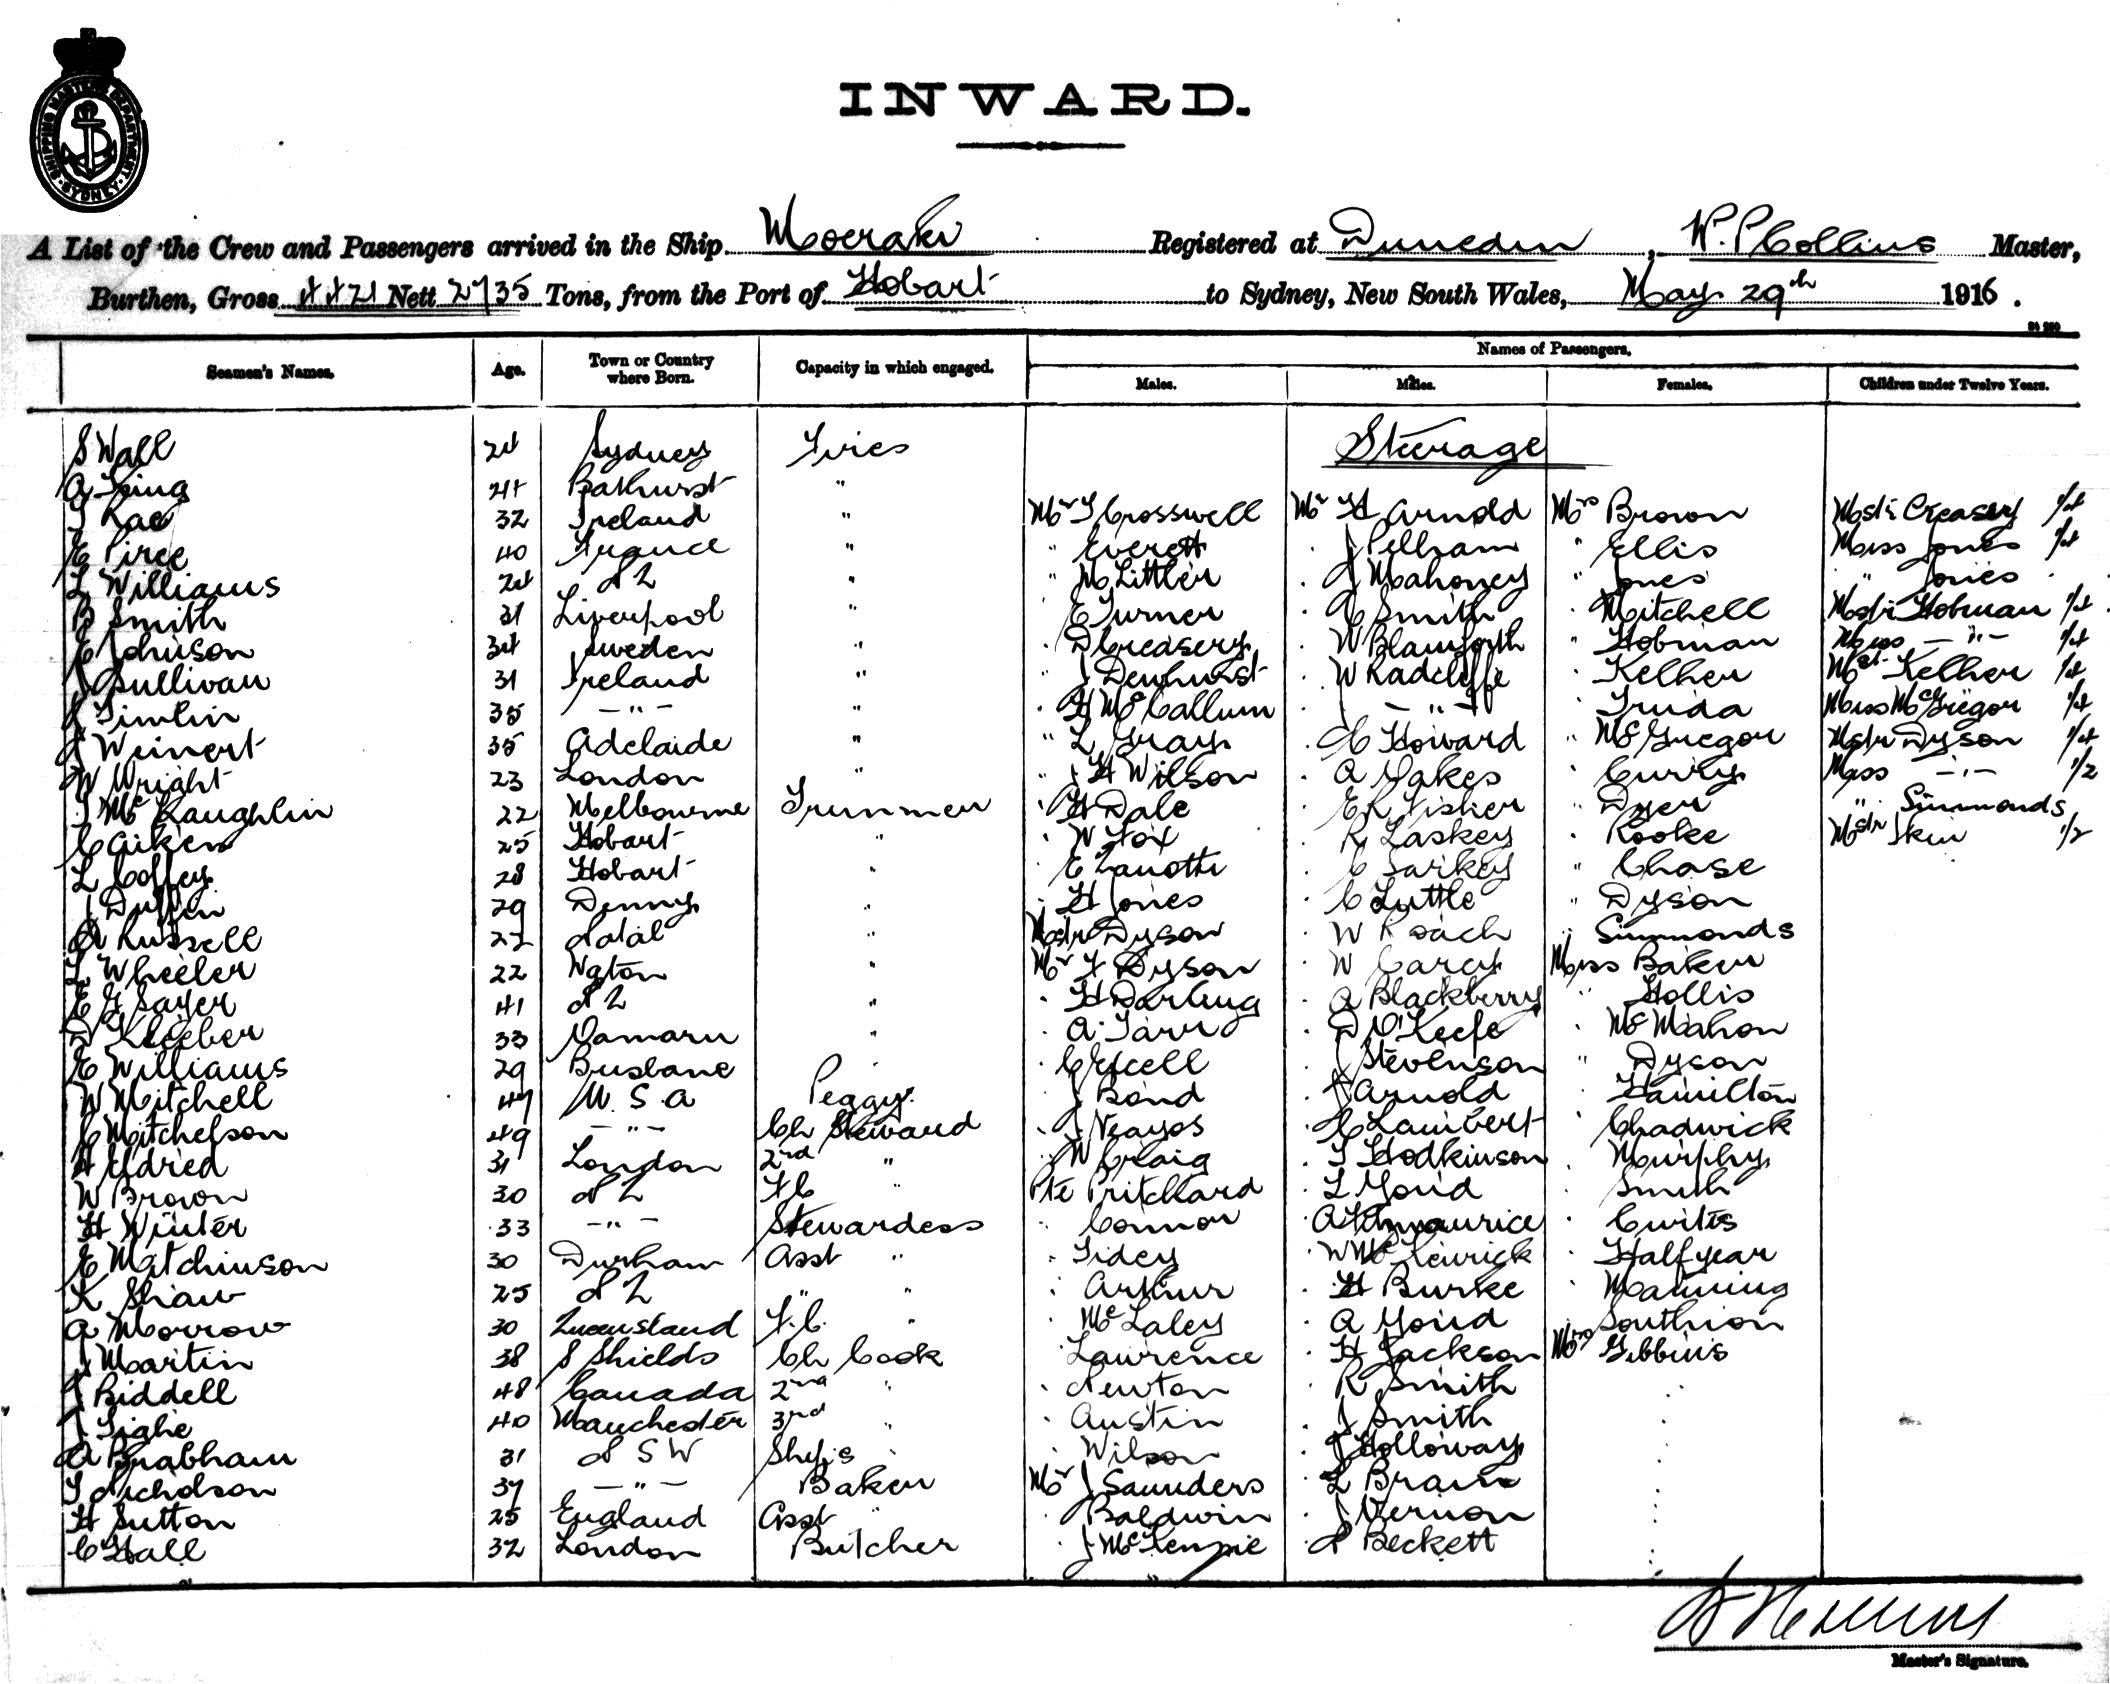 SHIPPING MASTER'S DEPARTMENT. SYDNEY
INWARD.
A List of the Crew and Passengers arrived in the Ship Moeraki Registered at Dunedin, W. P Collins Master,
Burthen, Gross 4421 Nett 2735 Tons, from the Port of Hobart to Sydney, New South Wales, May 29th 1916.
Seamen's Names. Age. Town or Country where Born. Capacity in which engaged. Names of Passengers.
Males. Males. Females. Children under Twelve Years.
S Wall 24 Sydney Fires Steerage
A King 24 Bathurst "
T Rae 32 Ireland " Mr T Crosswell Mr H Arnold Mrs Brown Mstr Creasey
E Piree 40 France " " Everett " J Pelham " Ellis Miss Jones
L Williams 24 N Z " " M Littler " J Mahoney " Jones " Jones
B Smith 31 Liverpool " E Turner C Smith Mitchell Mstr Hobman
E Johnson 34 Sweden " D Creasery W Blamforth " Hobman Miss — " —
J Sullivan 31 Ireland " " J Dewhurst W Radcliffe Kelher Mstr Kelher
J Timlin 35 — " — " H McCallum J — " — Truda Miss McGregor
J Weinert 35 Adelaide " " L Gray C Howard " McGregor Mstr Dyson
W Wright 23 London " " J H Wilson A Oakes Curry Miss — " — 1/2
J McLaughlin 22 Melbourne Trunmen H Dale E R Fisher Dyer " Simmonds
C Aiken 25 Hobart " W Fox R Laskey Rooke Mstr Skin 1/2
L Coffey 28 Hobart " E Zanotti C Sarkey " Chase
J Duffin 29 Denny " H Jones C Luttle " Dyson
A Russell 27 Natal " Mstr Dyson W Roach Simmonds
L Wheeler 22 Wgton " Mr F Dyson W Carey Miss Baker
E G Sayer 41 N Z " H Darling A Blackberry " Hollis
D Kleeber 33 Oamaru " A Tarr D O'Keefe McMahon
E Williams 29 Brisbane " C Excell J Stevenson " Dyson
W Mitchell 47 U. S. A Peggy J Bond Arnold Hamilton
C Mitchelson 49 — " — Ch Steward J Neayos C Lambert Chadwick
H Eldred 31 London 2nd " W Craig T Hodkinson Murphy
W Brown 30 N Z F C " Pte Pritchard L Yord Smith
H Winter 33 — " — Stewardess " Connor A Fitzmaurice Curtis
E Mitchinson 30 Durham Asst " Tidey W McKewrick Halfyear
K Shaw 25 N Z " " Arthur H Burke Manning
A Morrow 30 Queensland F. C. " McLaley A Yord Southion
J Martin 38 S Shields Ch Cook Lawrence H Jackson Mrs Gibbins
J Riddell 48 Canada 2nd " Newton R Smith
J Tighe 40 Manchester 3rd " Austin J Smith
A Brabham 31 N S W Shp's " Wilson J Holloway
T Nicholson 37 — " — Baker Mr J Saunders L Brain
H Sutton 25 England Asst " Baldwin J Vernon
C Hall 32 London Butcher J McKenzie N Beckett
Master's Signature.